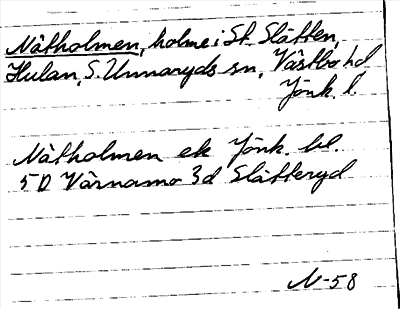 Nätholmen, holme i St. Slätten,
Hulan, S. Unnaryds sn, Västbo hd
Jönk. l.
Nätholmen ek Jönk. bl.
5D Värnamo 3d Slätteryd
N-58